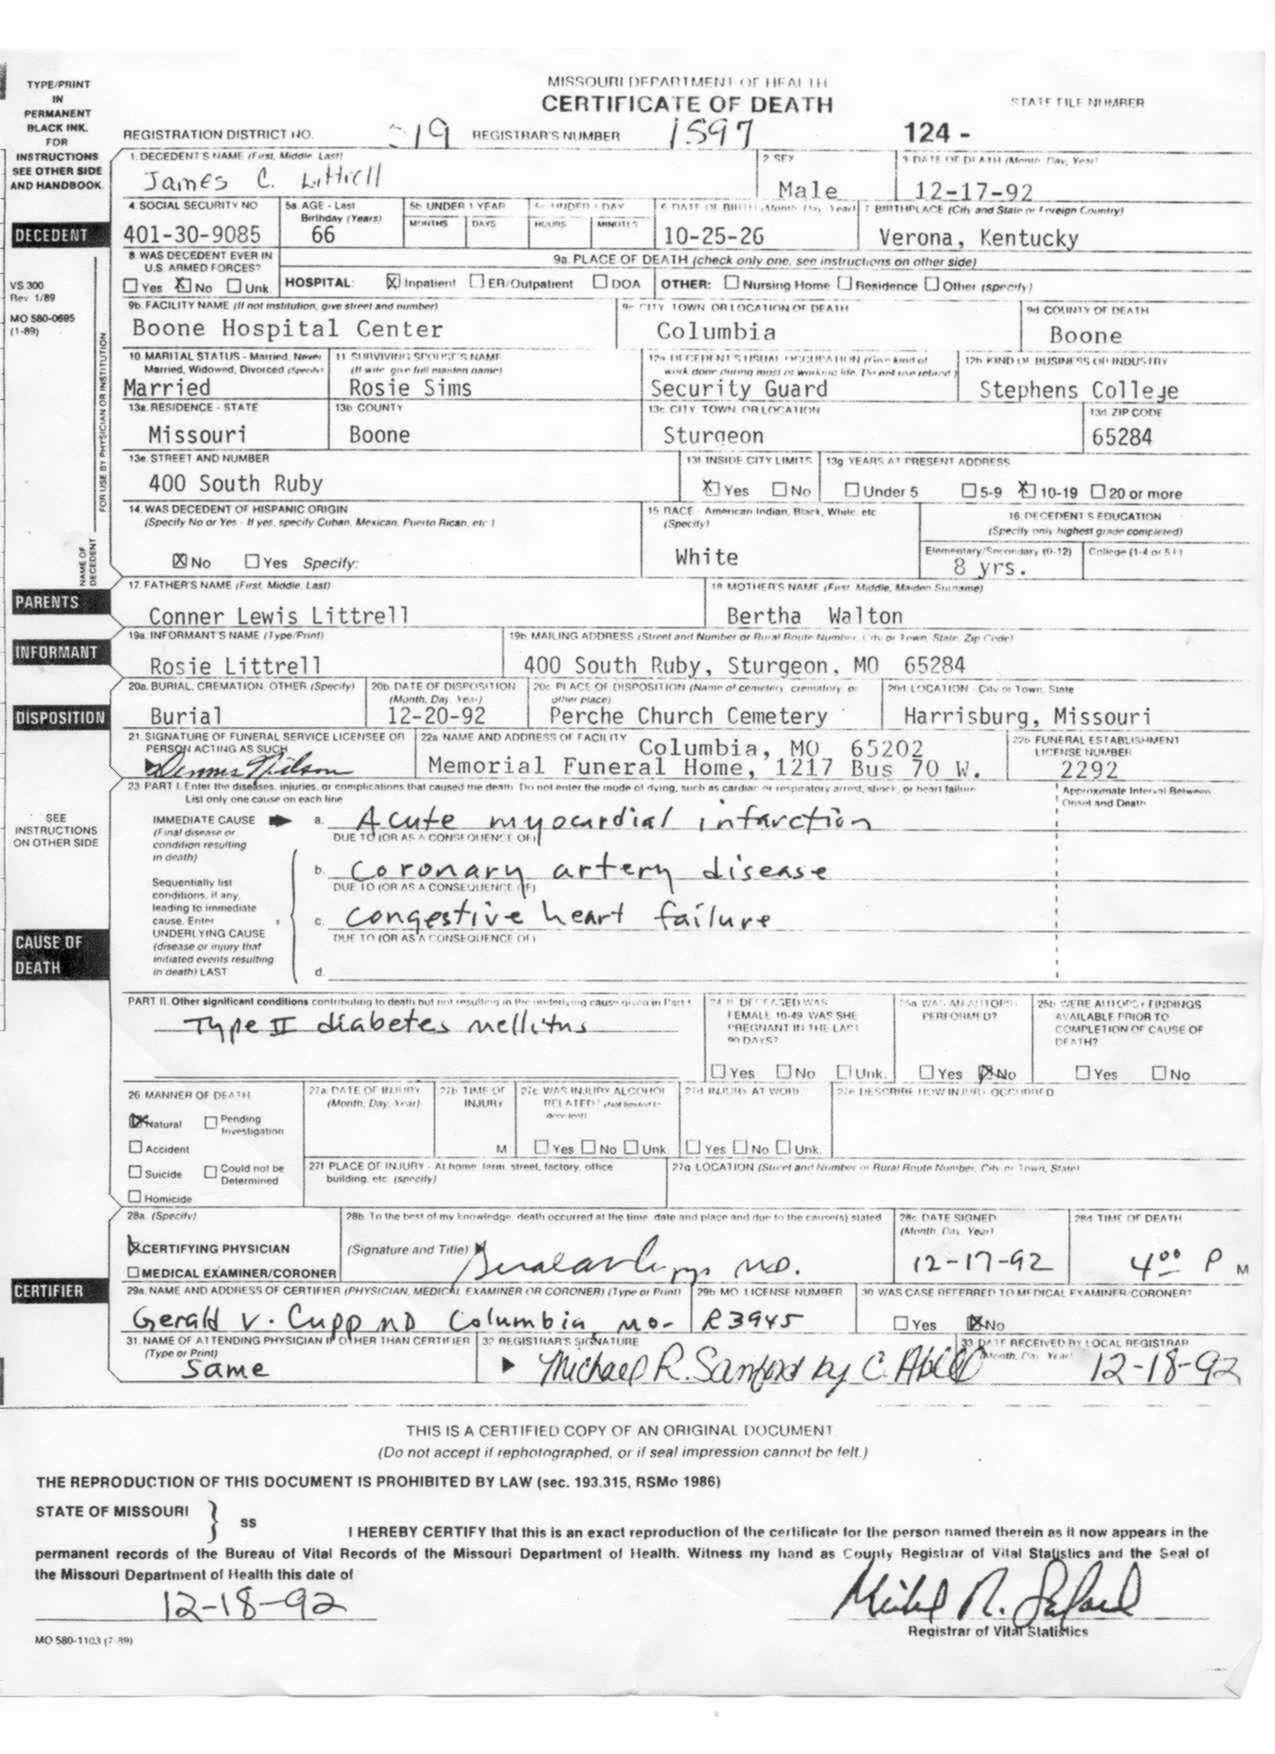 MISSOURI DEPARTMENT OF HEALTH
CERTIFICATE OF DEATH
STATE FILE NUMBER
TYPE/PRINT
IN
PERMANENT
BLACK INK.
FOR
INSTRUCTIONS
SEE OTHER SIDE
AND HANDBOOK.
REGISTRATION DISTRICT NO. 19 REGISTRAR'S NUMBER 1597 124 -
1. DECEDENT'S NAME (First, Middle, Last)
James C. Littrell
2. SEX
Male
3. DATE OF DEATH (Month, Day, Year)
12-17-92
DECEDENT
4. SOCIAL SECURITY NO
401-30-9085
5a. AGE - Last
Birthday (Years)
66
5b. UNDER 1 YEAR
MONTHS DAYS
5c. UNDER 1 DAY
HOURS MINUTES
6. DATE OF BIRTH (Month, Day, Year)
10-25-26
7. BIRTHPLACE (City and State or Foreign Country)
Verona, Kentucky
VS 300
Rev 1/89
MO 580-0695
(1-89)
8. WAS DECEDENT EVER IN
U.S. ARMED FORCES?
Yes X No Unk
9a. PLACE OF DEATH (check only one, see instructions on other side)
HOSPITAL: X Inpatient ER/Outpatient DOA OTHER: Nursing Home Residence Other (specify)
9b. FACILITY NAME (If not institution, give street and number)
Boone Hospital Center
9c. CITY, TOWN, OR LOCATION OF DEATH
Columbia
9d. COUNTY OF DEATH
Boone
10. MARITAL STATUS - Married, Never
Married, Widowed, Divorced (Specify)
Married
11. SURVIVING SPOUSE'S NAME
(If wife, give full maiden name)
Rosie Sims
12a. DECEDENT'S USUAL OCCUPATION (Give kind of
work done during most of working life. Do not use retired.)
Security Guard
12b. KIND OF BUSINESS OR INDUSTRY
Stephens College
13a. RESIDENCE - STATE
Missouri
13b. COUNTY
Boone
13c. CITY, TOWN, OR LOCATION
Sturgeon
13d. ZIP CODE
65284
13e. STREET AND NUMBER
400 South Ruby
13f. INSIDE CITY LIMITS
X Yes No
13g. YEARS AT PRESENT ADDRESS
Under 5 5-9 X 10-19 20 or more
14. WAS DECEDENT OF HISPANIC ORIGIN
(Specify No or Yes - If yes, specify Cuban, Mexican, Puerto Rican, etc.)
X No Yes Specify:
15. RACE - American Indian, Black, White, etc
(Specify)
White
16. DECEDENT'S EDUCATION
(Specify only highest grade completed)
Elementary/Secondary (0-12) College (1-4 or 5+)
8 yrs.
NAME OF
DECEDENT
FOR USE BY PHYSICIAN OR INSTITUTION
PARENTS
17. FATHER'S NAME (First, Middle, Last)
Conner Lewis Littrell
18. MOTHER'S NAME (First, Middle, Maiden Surname)
Bertha Walton
INFORMANT
19a. INFORMANT'S NAME (Type/Print)
Rosie Littrell
19b. MAILING ADDRESS (Street and Number or Rural Route Number, City or Town, State, Zip Code)
400 South Ruby, Sturgeon, MO 65284
DISPOSITION
20a. BURIAL, CREMATION, OTHER (Specify)
Burial
20b. DATE OF DISPOSITION
(Month, Day, Year)
12-20-92
20c. PLACE OF DISPOSITION (Name of cemetery, crematory, or
other place)
Perche Church Cemetery
20d. LOCATION - City or Town, State
Harrisburg, Missouri
21. SIGNATURE OF FUNERAL SERVICE LICENSEE OR
PERSON ACTING AS SUCH
Dennis Nilson
22a. NAME AND ADDRESS OF FACILITY
Columbia, MO 65202
Memorial Funeral Home, 1217 Bus 70 W.
22b. FUNERAL ESTABLISHMENT
LICENSE NUMBER
2292
SEE
INSTRUCTIONS
ON OTHER SIDE
23. PART I. Enter the diseases, injuries, or complications that caused the death. Do not enter the mode of dying, such as cardiac or respiratory arrest, shock, or heart failure.
List only one cause on each line
Approximate Interval Between
Onset and Death
IMMEDIATE CAUSE
(Final disease or
condition resulting
in death)
a. Acute myocardial infarction
DUE TO (OR AS A CONSEQUENCE OF)
b. Coronary artery disease
DUE TO (OR AS A CONSEQUENCE OF)
c. Congestive heart failure
DUE TO (OR AS A CONSEQUENCE OF)
d.
Sequentially list
conditions, if any,
leading to immediate
cause. Enter
UNDERLYING CAUSE
(disease or injury that
initiated events resulting
in death) LAST
CAUSE OF
DEATH
PART II. Other significant conditions contributing to death but not resulting in the underlying cause given in Part I
Type II diabetes mellitus
24. IF DECEASED WAS
FEMALE 10-49, WAS SHE
PREGNANT IN THE LAST
90 DAYS?
Yes No Unk.
25a. WAS AN AUTOPSY
PERFORMED?
Yes X No
25b. WERE AUTOPSY FINDINGS
AVAILABLE PRIOR TO
COMPLETION OF CAUSE OF
DEATH?
Yes No
26. MANNER OF DEATH
X Natural Pending
Investigation
Accident
Suicide Could not be
Determined
Homicide
27a. DATE OF INJURY
(Month, Day, Year)
27b. TIME OF
INJURY
M
27c. WAS INJURY ALCOHOL
RELATED?
Yes No Unk
27d. INJURY AT WORK
Yes No Unk.
27e. DESCRIBE HOW INJURY OCCURRED
27f. PLACE OF INJURY - At home, farm, street, factory, office
building, etc. (specify)
27g. LOCATION (Street and Number or Rural Route Number, City or Town, State)
28a. (Specify)
X CERTIFYING PHYSICIAN
MEDICAL EXAMINER/CORONER
28b. To the best of my knowledge, death occurred at the time, date and place and due to the cause(s) stated
(Signature and Title) Gerald V. Cupp MD.
28c. DATE SIGNED
(Month, Day, Year)
12-17-92
28d. TIME OF DEATH
4:00 P M
CERTIFIER
29a. NAME AND ADDRESS OF CERTIFIER (PHYSICIAN, MEDICAL EXAMINER OR CORONER) (Type or Print)
Gerald V. Cupp MD Columbia MO.
29b. MO. LICENSE NUMBER
R3945
30. WAS CASE REFERRED TO MEDICAL EXAMINER/CORONER?
Yes X No
31. NAME OF ATTENDING PHYSICIAN IF OTHER THAN CERTIFIER
(Type or Print)
Same
32. REGISTRAR'S SIGNATURE
Michael R. Sanford by C.
33. DATE RECEIVED BY LOCAL REGISTRAR
(Month, Day, Year)
12-18-92
THIS IS A CERTIFIED COPY OF AN ORIGINAL DOCUMENT
(Do not accept if rephotographed, or if seal impression cannot be felt.)
THE REPRODUCTION OF THIS DOCUMENT IS PROHIBITED BY LAW (sec. 193.315, RSMo 1986)
STATE OF MISSOURI } ss
I HEREBY CERTIFY that this is an exact reproduction of the certificate for the person named therein as it now appears in the
permanent records of the Bureau of Vital Records of the Missouri Department of Health. Witness my hand as County Registrar of Vital Statistics and the Seal of
the Missouri Department of Health this date of
12-18-92
Michael R. Sanford
Registrar of Vital Statistics
MO 580-1103 (7-89)